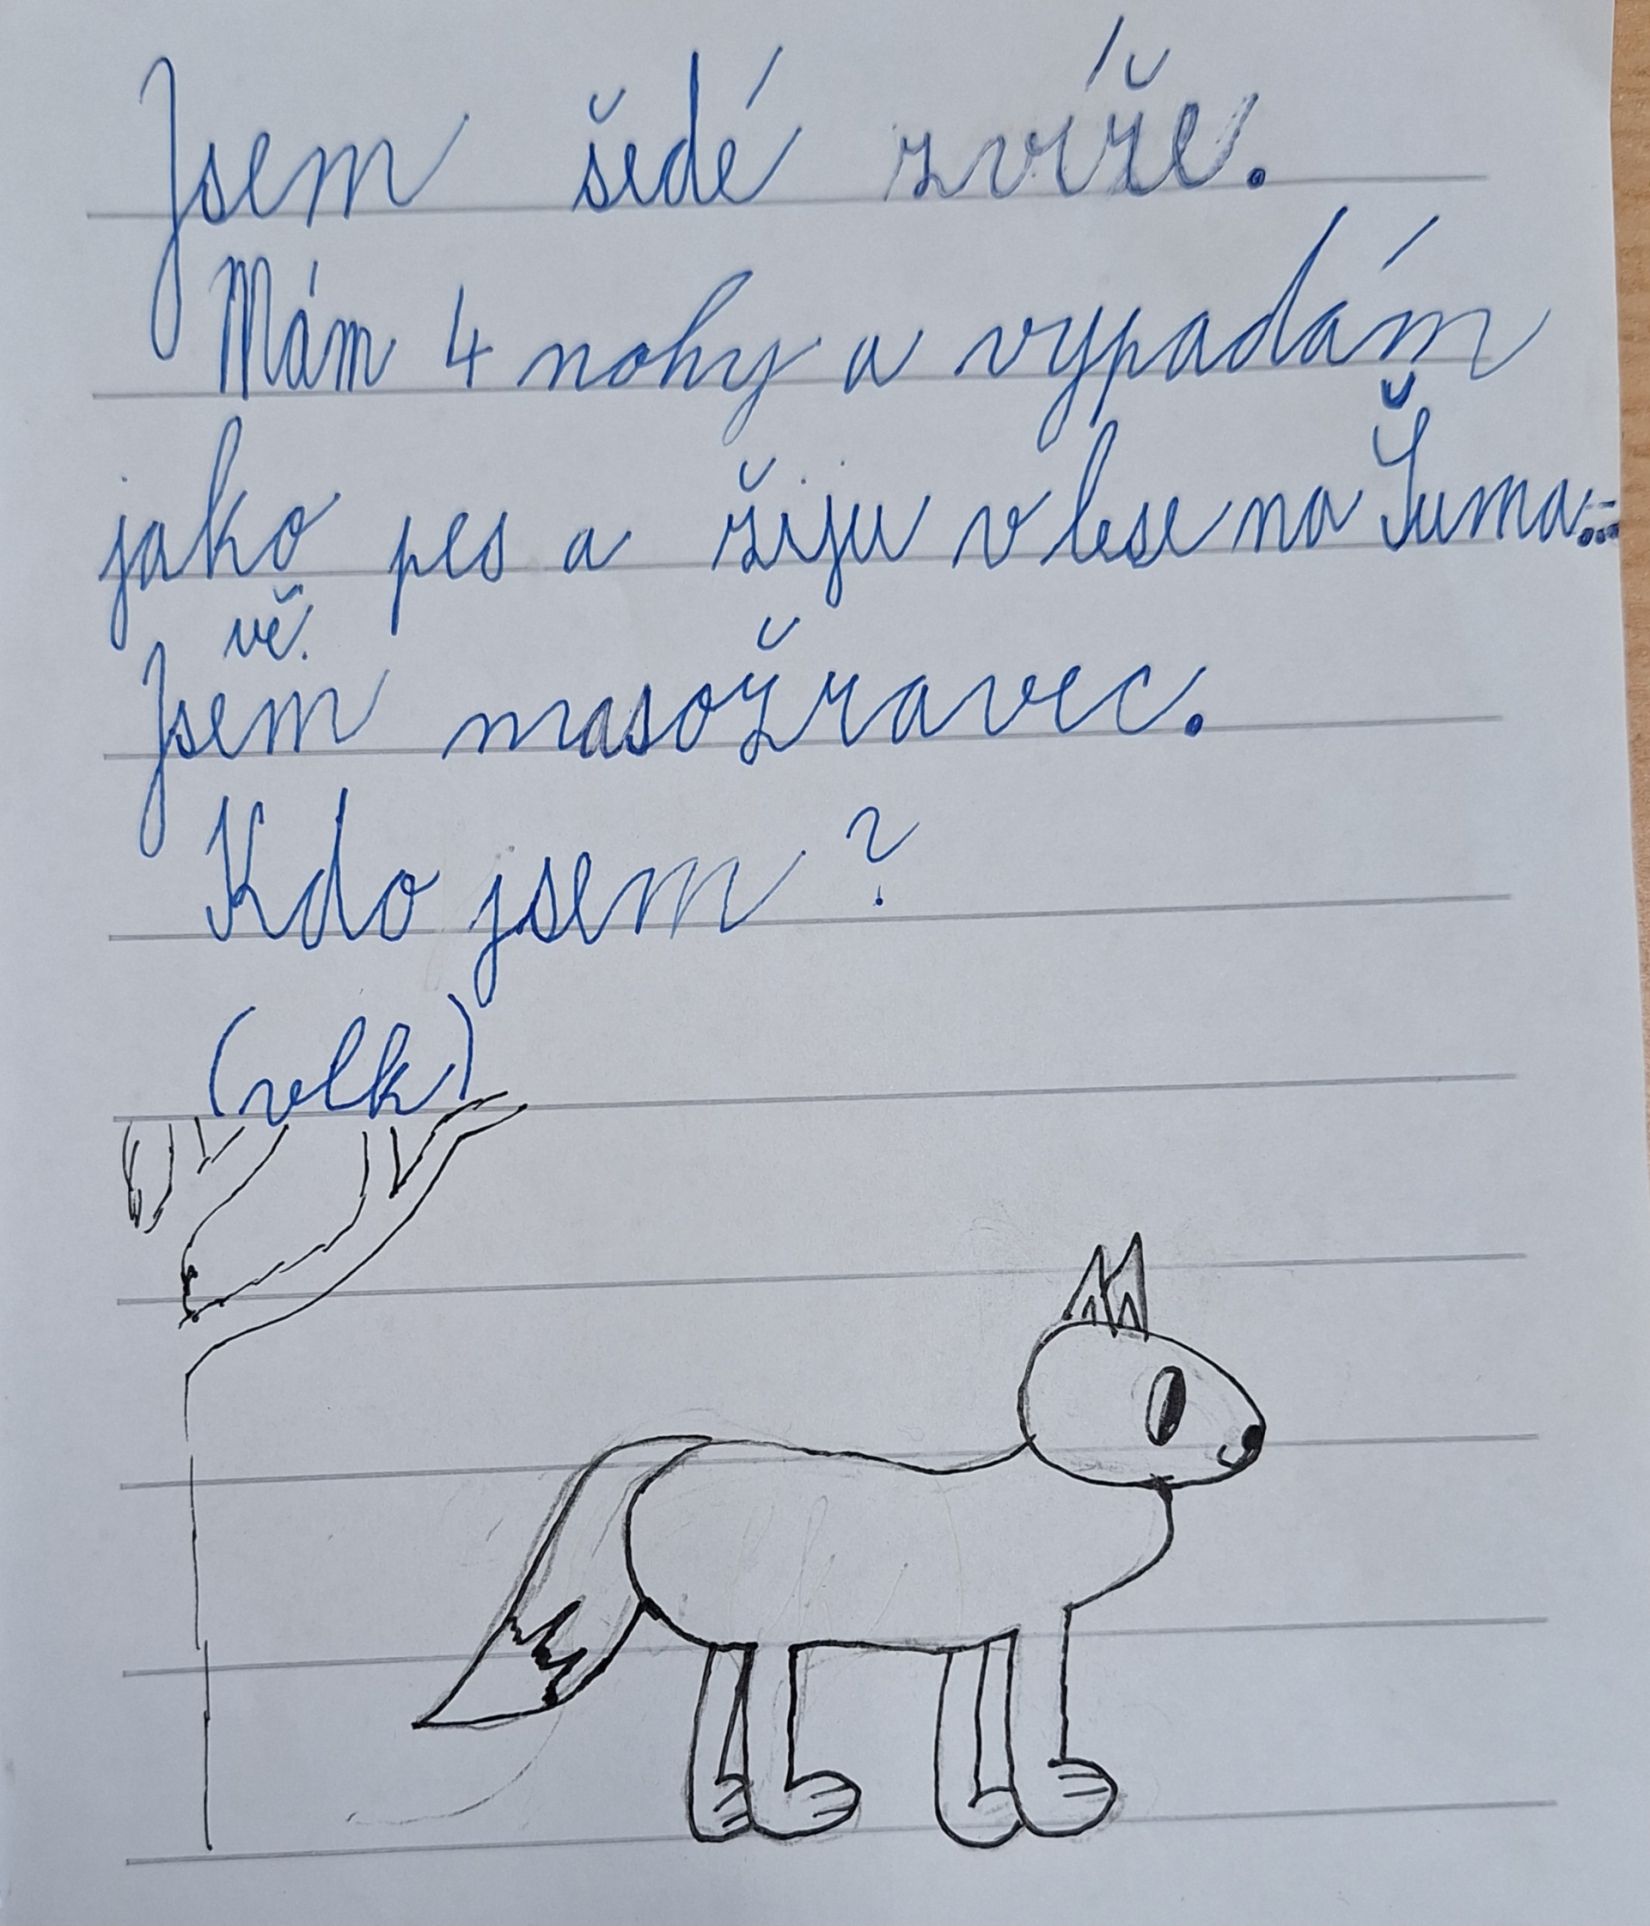 Jsem šedé zvíře.
Mám 4 nohy a vypadám
jako pes a žiju v lese na Šuma-
vě.
Jsem masožravec.
Kdo jsem?
(vlk)